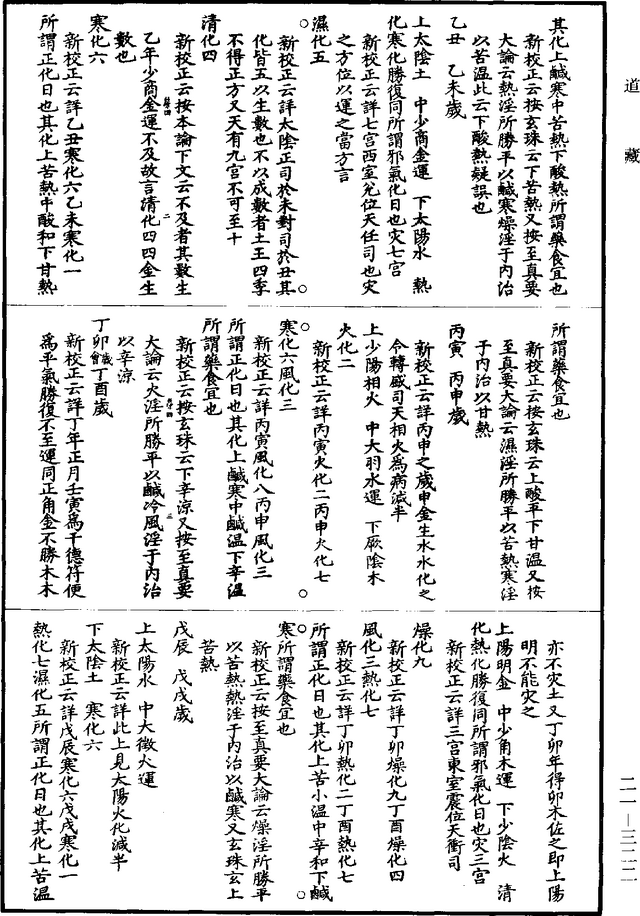 道藏
其化上鹹寒中苦熱下酸熱所謂藥食宜也
新校正云按玄珠云下苦熱又按至真要
大論云熱淫所勝平以鹹寒燥淫于內治
以苦溫此云下酸熱疑誤也
乙丑　乙未歲
上太陰土　中少商金運　下太陽水　熱
化寒化勝復同所謂邪氣化日也灾七宮
新校正云詳七宮西室兌位天任司也灾
之方位以運之當方言
濕化五
新校正云詳太陰正司於未對司於丑其
化皆五以生數也不以成數者土王四季
不得正方又天有九宮不可至十
清化四
新校正云按本論下文云不及者其數生
乙年少商金運不及故言清化四四金生
數也
寒化六
新校正云詳乙丑寒化六乙未寒化一
所謂正化日也其化上苦熱中酸和下甘熱
所謂藥食宜也
新校正云按玄珠云上酸平下甘溫又按
至真要大論云濕淫所勝平以苦熱寒淫
于內治以甘熱
丙寅　丙申歲
新校正云詳丙申之歲申金生水水化之
令轉盛司天相火為病減半
上少陽相火　中大羽水運　下厥陰木
火化二
新校正云詳丙寅火化二丙申火化七
寒化六風化三
新校正云詳丙寅風化八丙申風化三
所謂正化日也其化上鹹寒中鹹溫下辛溫
所謂藥食宜也
新校正云按玄珠云下辛涼又按至真要
大論云火淫所勝平以鹹冷風淫于內治
以辛涼
丁卯歲會丁酉歲
新校正云詳丁年正月壬寅為干德符便
為平氣勝復不至運同正角金不勝木木
亦不灾土又丁卯年得卯木佐之即上陽
明不能灾之
上陽明金　中少角木運　下少陰火　清
化熱化勝復同所謂邪氣化日也灾三宮
新校正云詳三宮東室震位天衝司
燥化九
新校正云詳丁卯燥化九丁酉燥化四
風化三熱化七
新校正云詳丁卯熱化二丁酉熱化七
所謂正化日也其化上苦小溫中辛和下鹹
寒所謂藥食宜也
新校正云按至真要大論云燥淫所勝平
以苦熱熱淫于內治以鹹寒又玄珠云上
苦熱
戊辰　戊戌歲
上太陽水　中大徵火運
新校正云詳此上見太陽火化減半
下太陰土　寒化六
新校正云詳戊辰寒化六戊戌寒化一
熱化七濕化五所謂正化日也其化上苦溫
二一—三二二